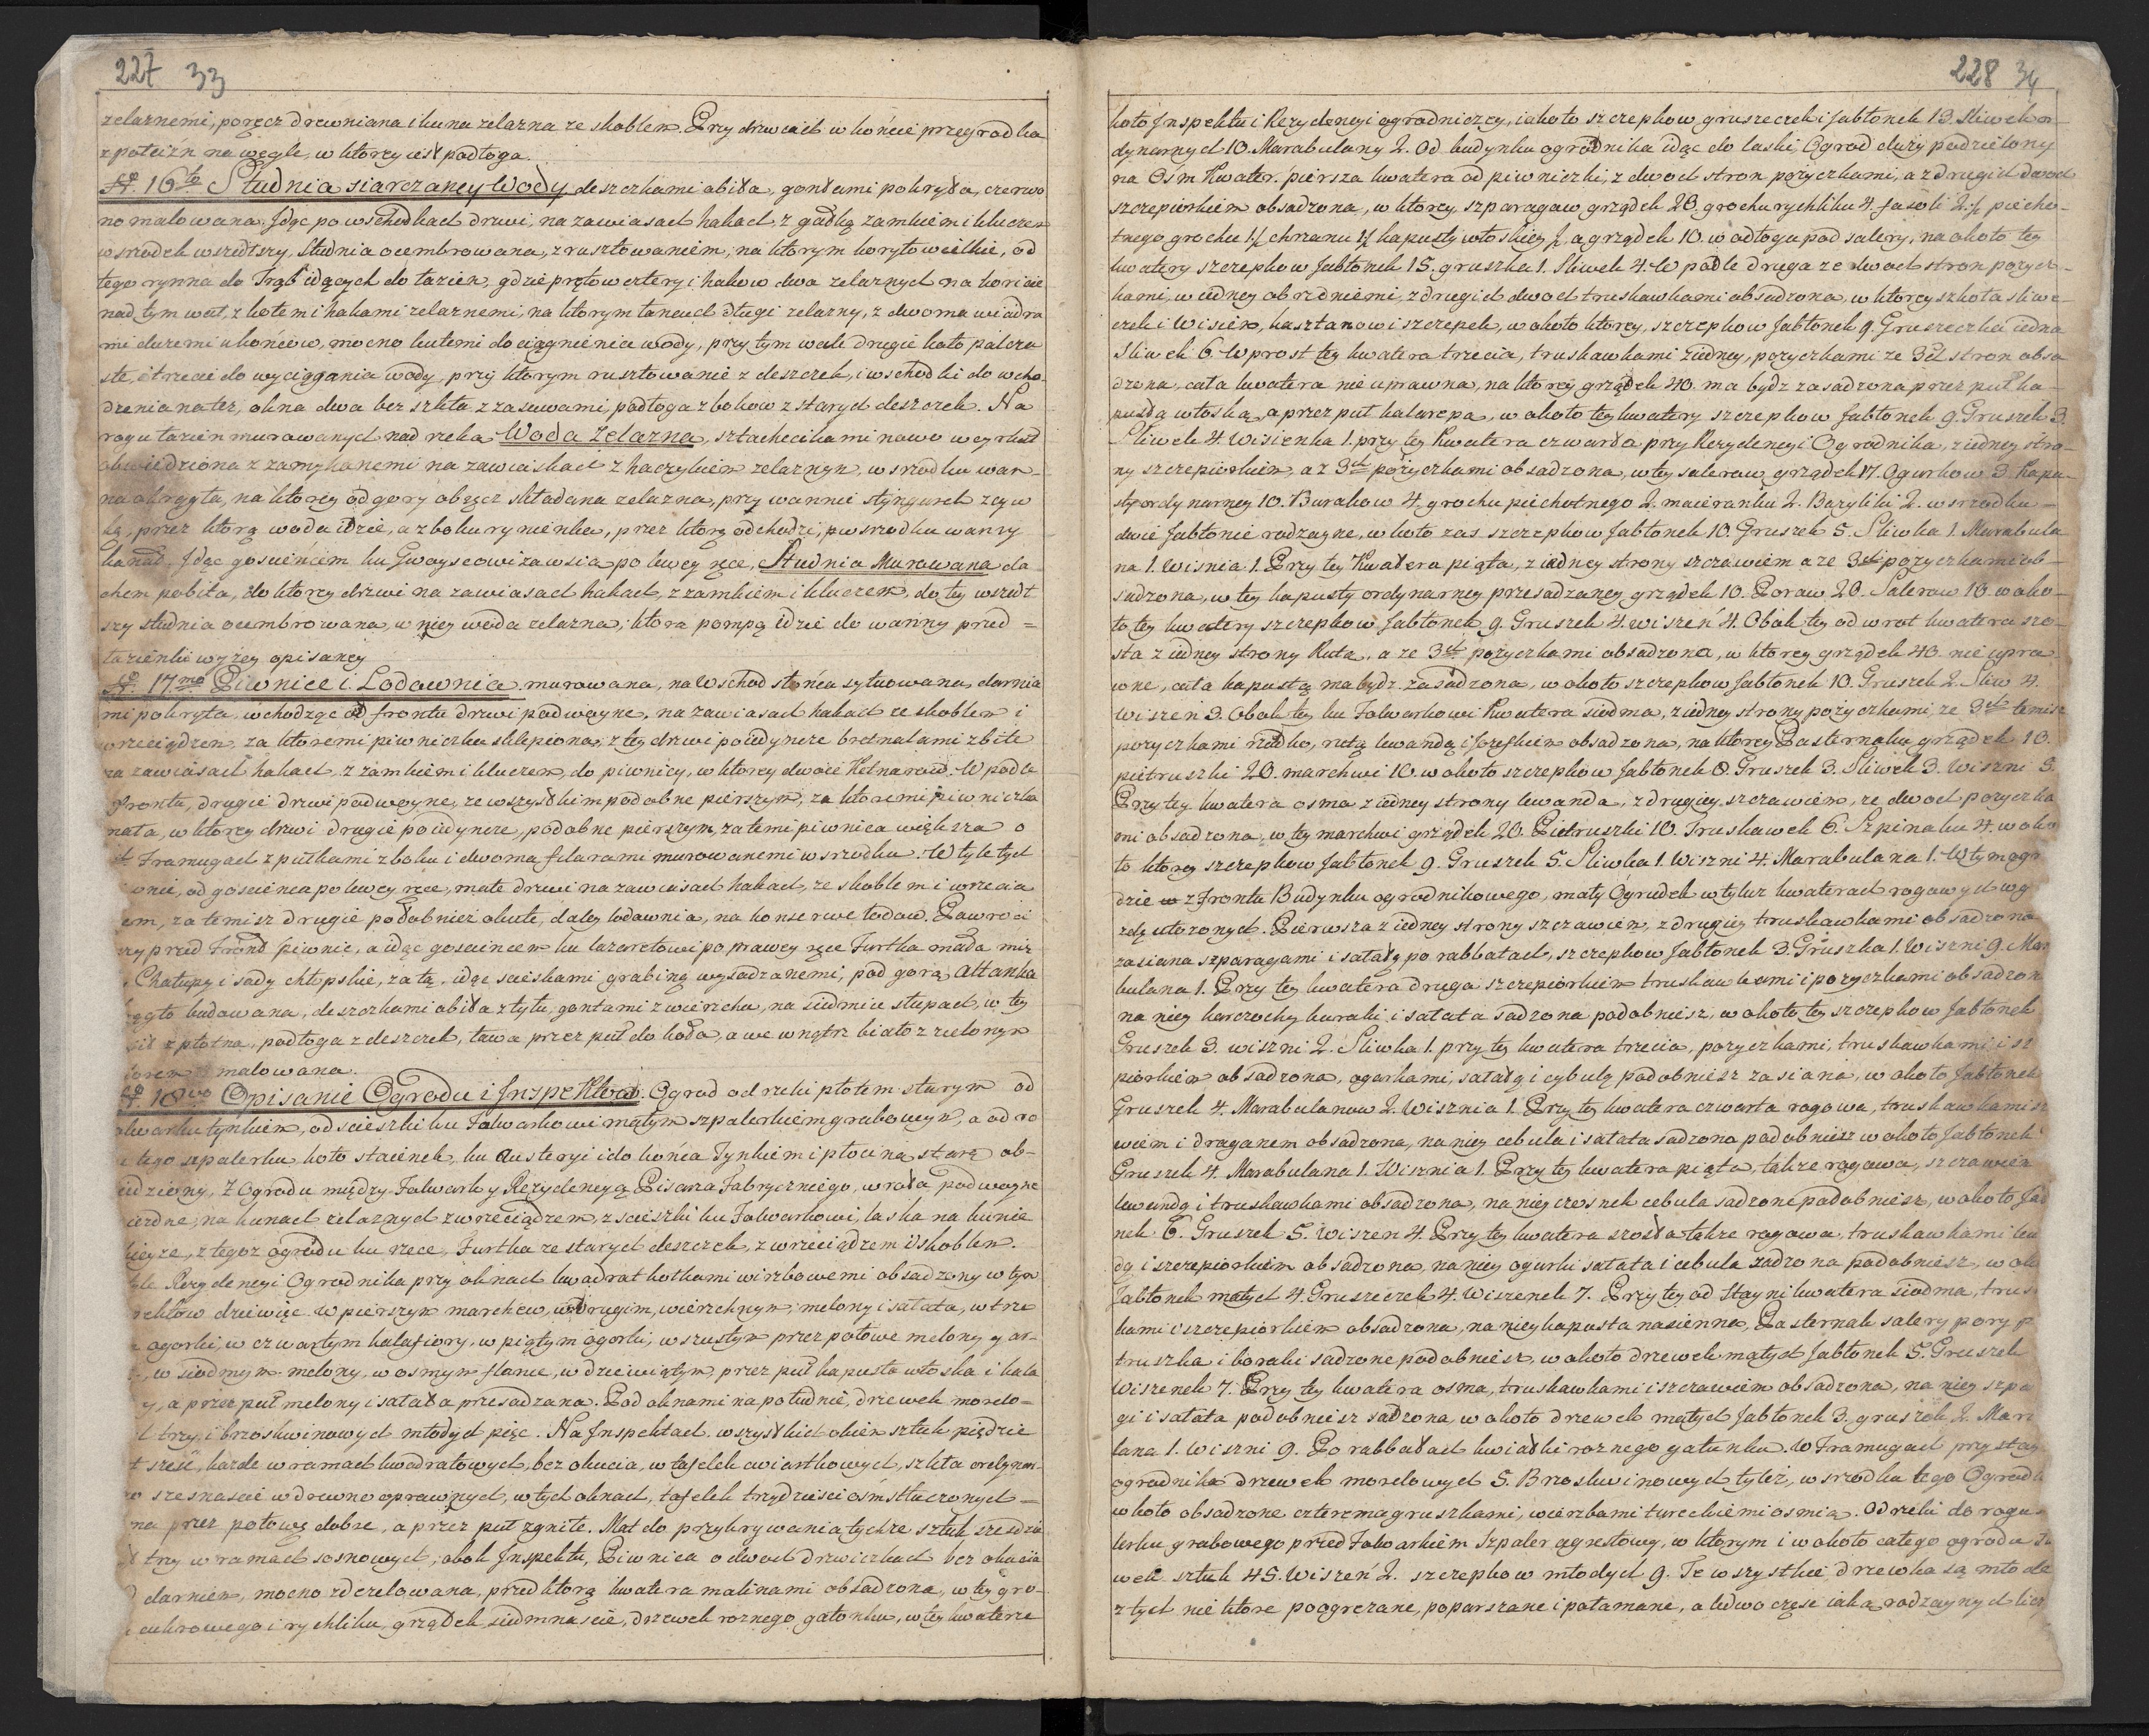 227 33
zelaznemi, poręcz drewniana i kuna zelazna ze skoblem. Przy drzwiach w końcie przegrodka
na węgle, w ktorey iest podłoga.
16to Studnia siarczaney Wody deszczkami obita, gontami pokryta, czerwo
no malowana, Idąc po wschodkach drzwi, na zawiasach hakach, z gałką zamkiem i kluczem
w srzodek wszedłszy, Studnia ocembrowana, z rusztowaniem, na ktorym koryto wielkie, od
tego rynna do Trąb idących do łazien, gdzie prętow cztery i hakow dwa zelaznych na koricie
nad tym wał, z kołem i hakami zelaznemi, na ktorym łancuch długi zelazny, z dwoma wiadra
mi duzemi u końców, mocno kutemi do ciągnienia wody, przy tym wale drugie koło palcza
ste, i trzecie do wyciągania wody, przy ktorym rusztowanie z deszczek, i wschodki do wcho-
dzenia na też, okna dwa bez szkła z zasuwami, podłoga z bokow z starych deszczek. Na
rogu łazien murowanych nad rzeka Woda Zelazna, sztachecikami nowo w cyrkuł
obwiedziona z zamykanemi na zawiaskach z haczykiem zelaznym, w srzodku wan-
na okrągła, na ktorey od gory obręcz składana zelazna, przy wannie
przez ktorą woda idzie, a z boku rynienka, przez ktorą odchodzi, po srzodku wanny
kanał. Idąc gosciencem ku za wsią po lewey ręce, Studnia Murowana da
chem pobita, do ktorey drzwi na zawiasach hakach, z zamkiem i kluczem, do tey wszedł
szy studnia ocembrowana, w niey woda zelazna, ktora pompą idzie do wanny przed =
łazienki wyzey opisaney
17mo Piwnice i Lodownia murowana, na Wschod słońca sytuowana, darnia
mi pokryta, wchodząc od frontu drzwi podwoyne, na zawiasach hakach ze skoblem i
wrzeciądzem, za ktoremi piwniczka sklepiona, z tey drzwi poiedyncze bretnalami zbite
na zawiasach hakach, z zamkiem i kluczem, do piwnicy, w ktorey dwoie. W podle
frontu, drugie drzwi podwoyne, ze wszystkim podobne pierszym, za ktoremi piwniczka
mała, w ktorey drzwi drugie poiedyncze, podobne pierszym, za temi piwnica większa o
Framugach z pułkami z boku i dwoma filarami murowanemi w srzodku. W tyle tych
piwnic, od goscienca po lewey ręce, małe drzwi na zawiasach hakach, ze skoblem i wrzecia
em, za temisz drugie podobniez okute, daley lodownia, na konserwe lodow. Powroci
szy przed Front piwnic, a idąc gosciencem ku lazaretowi po prawey ręce Furtka mała mię
Chałupy i sady chłopskie, za tą, idąc scieskami grabiną wysadzanemi, pod gorą Altanka
budowana, deszczkami obita z tyłu, gontami z wierzchu, na siedmiu słupach, w tey
z płotna, podłoga z deszczek, ława przez puł do koła, a we wnątrz biało z zielonym
malowana.
18vo Opisanie Ogrodu i Inspektow. Ogrod od rzeki płotem starym od
tynkiem, od scieszki ku Folwarkowi małym szpalerkiem grabowym, a od ro
tego szpalerku koło staienek, ku Austeryi i do końca Tynkiem i płocina starą ob-
wiedziony, z Ogrodu między Folwarky Rezydencyą Pisarza Fabrycznego, wrota podwoyne
na kunach zelaznych z wrzeciądzem, z scieszki ku Folwarkowi, laska na kunie
z tegoz ogrodu ku rzece, Furtka ze starych deszczek, z wrzeciądzem i skoblem.
Rezydencyi Ogrodnika przy oknach kwadrat kołkami wirzbowemi obsadzony w tym
dziewięc. W pierszym marchew, w drugim, wierzchnym, melony i sałata, w trze
ogorki, w czwartym kalafiory, w piątym ogorki, w szustym przez połowe melony y ar-
w siodmym melony, w osmym flance, w dziewiątym, przez puł kapusta włoska i kala
a przez puł melony i sałata przesadzana. Pod oknami na południe, drzewek morelo-
trzy, i brzoskwinowych młodych pięc. Na Inspektach wszystkich okien sztuk pięćdzie
sześć, kazde w ramach kwadratowych, bez okucia, w tafelek cwiartkowych, szkła ordynar-
szesnascie w drewno oprawnych, w tych oknach, tafelek trzydziesci ośm stłuczonych =
na przez połowę dobre, a przez puł zgniłe. Mat do przykrywania tychze sztuk szescdzie
trzy w ramach sosnowych, obok Inspektu, Piwnica o dwoch drzwiczkach bez okucia
darniem, mocno zdezelowana, przed ktorą kwatera malinami obsadzona, w tey gro-
cukrowego i rychliku, grządek siedmnascie, drzewek roznego gatonku, w tey kwaterze
228 34
koło Inspektu i Rezydencyi ogrodniczey, i około szczepkow gruszeczek i Jabłonek 13. Sliwek or
dynarnych 10. Marabulany 2. Od budynku ogrodnika idąc do laski, Ogrod duży podzielony
na Ośm Kwater. piersza kwatera od piwniczki, z dwoch stron pożyczkami, a z drugich dwoch
szczepiorkiem obsadzona, w ktorey szparagow grządek 20. grochu rychliku 4. fasoli 2. piecho-
tnego grochu chrzanu kapusty włoskiey, a grządek 10. w odłogu pod salery, na około tey
kwatery szczepkow Jabłonek 15. gruszka 1. Sliwek 4. W podle druga ze dwoch stron pożycz-
kami, w iedney obrzedniemi, z drugich dwoch truskawkami obsadzona, w ktorey szkoła sliwe-
czek i Wisien, kasztanow i szczepek, w około ktorey, szczepkow Jabłonek 9. Gruszeczka iedna
Sliwek 6. W prost tey kwatera trzecia, truskawkami ziedney, pożyczkami ze 3ch stron obsa
dzona, cała kwatera nie uprawna, na ktorey grządek 40. ma bydz zasadzona przez puł ka-
pustą włoską, a przez puł kalarepa, w około tey kwatery szczepkow Jabłonek 9. Gruszek 3.
Sliwek 4. Wisienka 1. przy tey Kwatera czwarta przy Rezydencyi Ogrodnika, z iedney stro-
ny szczepiorkiem, a z 3ch pożyczkami obsadzona, w tey salerow grządek 17. Ogurkow 3. Kapu-
sty ordynarney 10. Burakow 4. grochu piechotnego 2. maieranku 2. Bazyliki 2. w srzodku =
dwie Jabłonie rodzayne, w koło zas szczepkow Jabłonek 10. Gruszek 5. Sliwka 1. Marabula
na 1. Wisnia 1. Przy tey Kwatera piąta, z iedney strony szczawiem a ze 3ch pożyczkami ob-
sadzona, w tey kapusty ordynarney przesadzaney grządek 10. Porow 20. Salerow 10. w oko-
ło tey kwatery szczepkow Jabłonek 9. Gruszek 4. wiszeń 4. Obok tey od wrot kwatera szo-
sta z iedney strony Ruta, a ze 3ch pożyczkami obsadzona, w ktorey grządek 40. nie upra
wne, cała kapustą ma bydz zasadzona, w około szczepkow Jabłonek 10. Gruszek 2. Sliw 4.
Wiszeń 3. Obok tey ku Folwarkowi Kwatera siodma, z iedney strony pożyczkami, ze 3ch temisz
pożyczkami rzedko, rutą lewandą i Jozefkiem obsadzona, na ktorey Pasternaku grządek 10.
pietruszki 20. marchwi 10. w około szczepkow Jabłonek 8. Gruszek 3. Sliwek 3. Wiszni 3.
Przy tey kwatera osma z iedney strony lewanda, z drugiey szczawiem, ze dwoch pożyczka
mi obsadzona, w tey marchwi grządek 20. Pietruszki 10. Truskawek 6. Szpinaku 4. w oko
ło ktorey szczepkow Jabłonek 9. Gruszek 5. Sliwka 1. Wiszni 4. Marabulana 1. W tym ogro
dzie z Frontu Budynku ogrodnikowego, mały Ogrudek w tyluz kwaterach rogowych w g
ułozonych. Pierwsza z iedney strony szczawiem, z drugiey truskawkami obsadzona
zasiana szparagami i sałatą po rabbatach, szczepkow Jabłonek 3. Gruszka 1. Wiszni 9. Mar
bulana 1. Przy tey kwatera druga szczepiorkiem truskawkami i pożyczkami obsadzon
na niey karczochy buraki i sałata sadzona podobniesz, w około tey szczepkow Jabłonek
Gruszek 3. wiszni 2. Sliwka 1. przy tey kwatera trzecia, pożyczkami, truskawkami i sz
piorkiem obsadzona, ogorkami, sałatą i cybulą podobniesz zasiana, w około Jabłonek
Gruszek 4. Marabulanow 2. Wisznia 1. Przy tey kwatera czwarta rogowa, truskawkami sz
wiem i draganem obsadzona, na niey cebula i sałata sadzona podobniesz w około Jabłonek
Gruszek 4. Marabulana 1. Wisznia 1. Przy tey kwatera piąta, także rogowa, szczawiem
lewandą i truskawkami obsadzona, na niey czosnek cebula sadzone podobniesz, w około Jab
nek 6. Gruszek 5. Wiszen 4. Przy tey kwatera szosta także rogowa, truskawkami lew
dą i szczepiorkiem obsadzona, na niey ogurki sałata i cebula sadzona podobniesz, w oko
Jabłonek małych 4. Gruszeczek 4. Wiszenek 7. Przy tey od Stayni kwatera siodma, trus
kami i szczepiorkiem obsadzona, na niey kapusta nasienna, Pasternak salery pory p
truszka i boraki sadzone podobniesz, w około drzewek małych Jabłonek 5. Gruszek
Wiszenek 7. Przy tey kwatera osma, truskawkami i szczawiem obsadzona, na niey szpa
gi i sałata podobniesz sadzona, w około drzewek małych Jabłonek 3. gruszek 2. Mar
lana 1. Wiszni 9. Po rabbatach kwiatki roznego gatunku. W Framugach przy stay
ogrodnika drzewek morelowych 5. Brzoskwinowych tyleż, w srzodku tego Ogrodu
w koło obsadzone czterema gruszkami, wierzbami tureckiemi osmią. Od rzeki do rogu
lerku grabowego przed Folwarkiem Szpaler agrestowy, w ktorym i w około całego ogrodu
wek sztuk 45. Wiszeń 2. szczepkow młodych 9. Te wszystkie drzewka są młode
z tych nie ktore poogrzane, poparszane i połamane, a ledwo częsc iaka rodzaynych